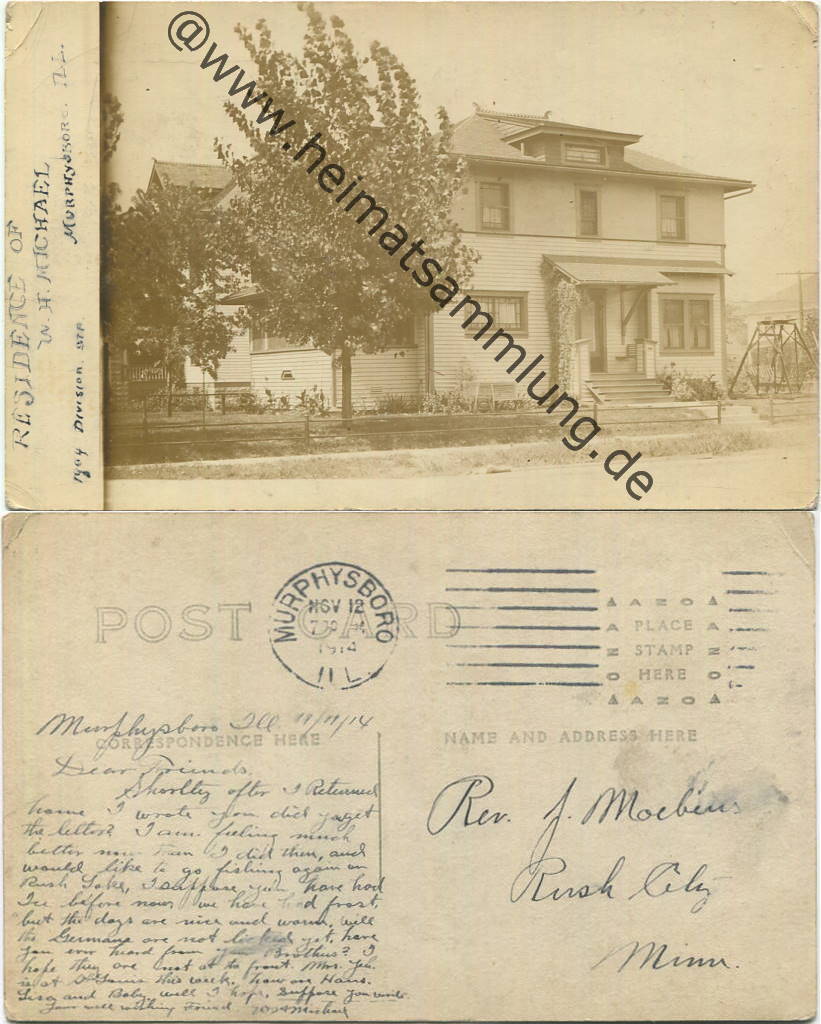 RESIDENCE OF
W. H. MICHAEL
MURPHYSBORO. ILL.
1904 DIVISION. STR.
@www.heimatsammlung.de
POST CARD
MURPHYSBORO
NOV 12
7
1914
ILL.
AZOA
PLACE
STAMP
HERE
AZOA
CORRESPONDENCE HERE
NAME AND ADDRESS HERE
Murphysboro Ill 11/11/14
Dear Friends,
Shortly after I Returned
home I wrote you did you get
the letter? I am feeling much
better now than I did then, and
would like to go fishing again on
Rush Lake, I suppose you have had
Ice before now, we have had frost,
but the days are nice and warm, will
the Germans are not licked yet, have
you ever heard from your Brothers? I
hope they are not at the front. Mrs.
is at St Louis this week. how are Hans.
Lisa and Baby, well I hope. Suppose you write
Your well wishing Friend Michael
Rev. J. Moebius
Rush City
Minn.